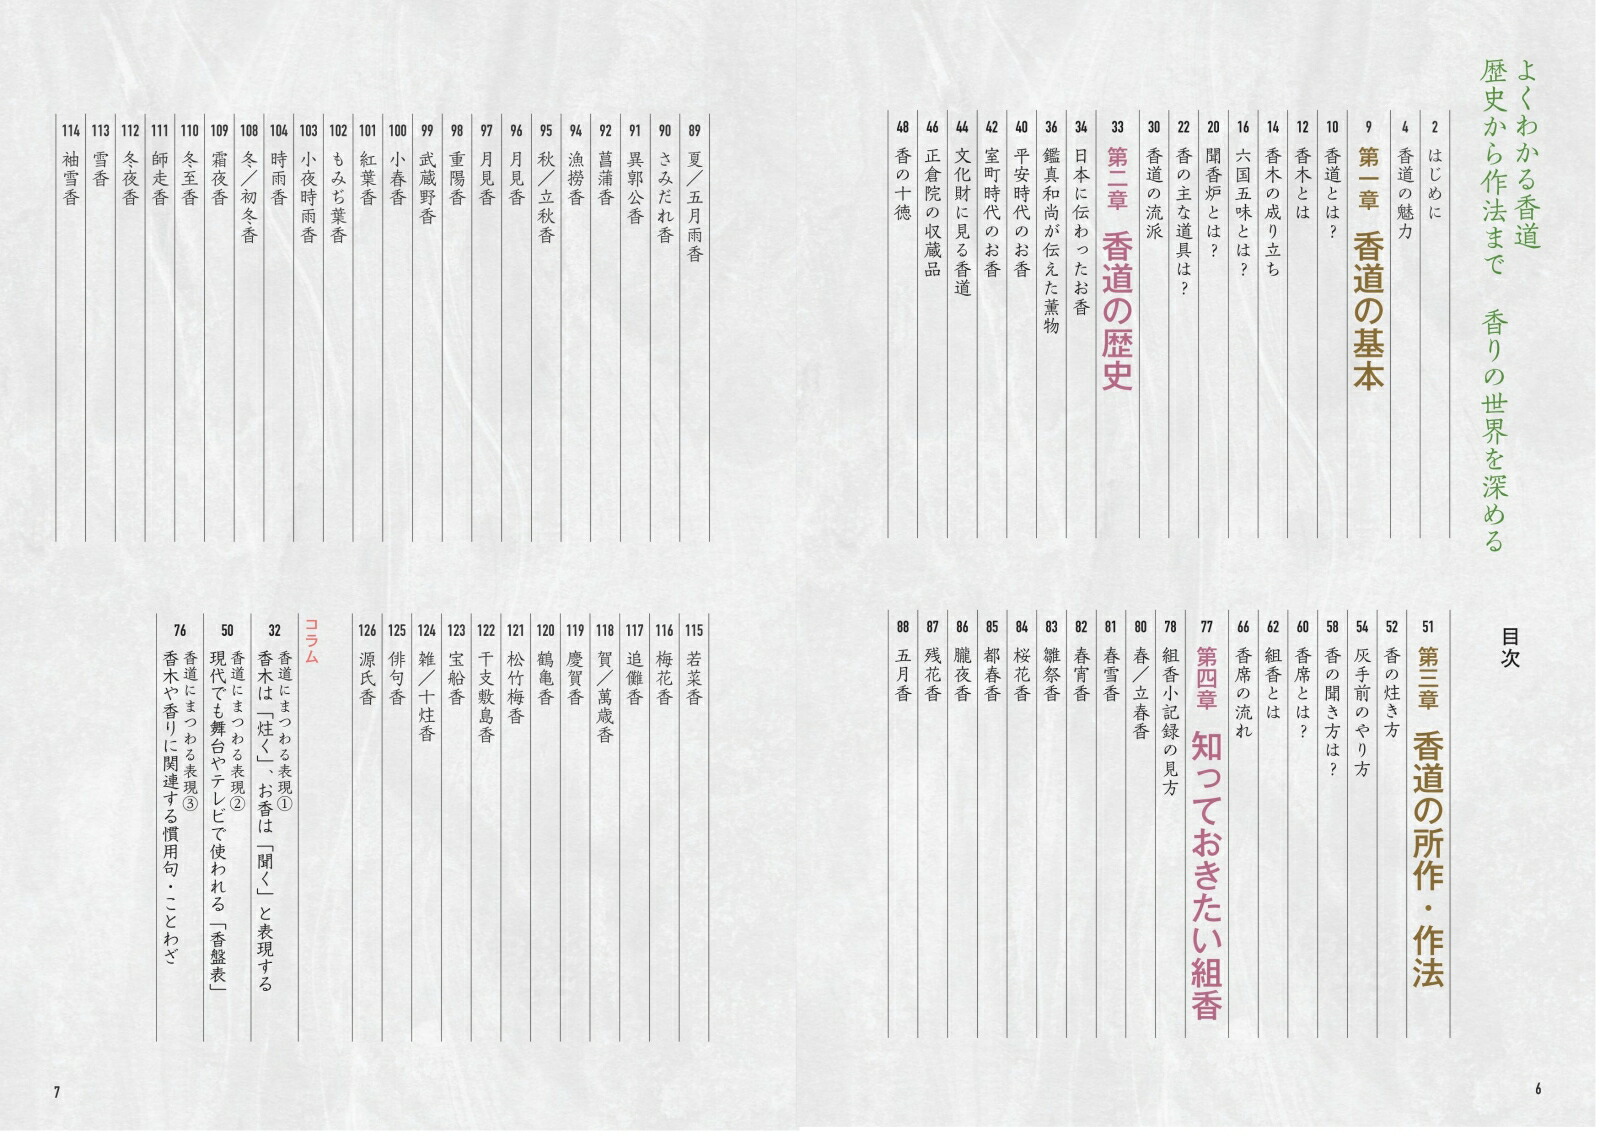 よくわかる香道
歴史から作法まで　香りの世界を深める
目次
2 はじめに
4 香道の魅力
9 第一章 香道の基本
10 香道とは?
12 香木とは
14 香木の成り立ち
16 六国五味とは?
20 聞香炉とは?
22 香の主な道具は?
30 香道の流派
33 第二章 香道の歴史
34 日本に伝わったお香
36 鑑真和尚が伝えた薫物
40 平安時代のお香
42 室町時代のお香
44 文化財に見る香道
46 正倉院の収蔵品
48 香の十徳
51 第三章 香道の所作・作法
52 香の炷き方
54 灰手前のやり方
58 香の聞き方は?
60 香席とは?
62 組香とは
66 香席の流れ
77 第四章 知っておきたい組香
78 組香小記録の見方
80 春/立春香
81 春雪香
82 春宵香
83 雛祭香
84 桜花香
85 都春香
86 朧夜香
87 残花香
88 五月香
6
89 夏/五月雨香
90 さみだれ香
91 異郭公香
92 菖蒲香
94 漁撈香
95 秋/立秋香
96 月見香
97 月見香
98 重陽香
99 武蔵野香
100 小春香
101 紅葉香
102 もみぢ葉香
103 小夜時雨香
104 時雨香
108 冬/初冬香
109 霜夜香
110 冬至香
111 師走香
112 冬夜香
113 雪香
114 袖雪香
115 若菜香
116 梅花香
117 追儺香
118 賀/萬歳香
119 慶賀香
120 鶴亀香
121 松竹梅香
122 干支敷島香
123 宝船香
124 雑/十炷香
125 俳句香
126 源氏香
コラム
32 香道にまつわる表現①
香木は「炷く」、お香は「聞く」と表現する
50 香道にまつわる表現②
現代でも舞台やテレビで使われる「香盤表」
76 香道にまつわる表現③
香木や香りに関連する慣用句・ことわざ
7